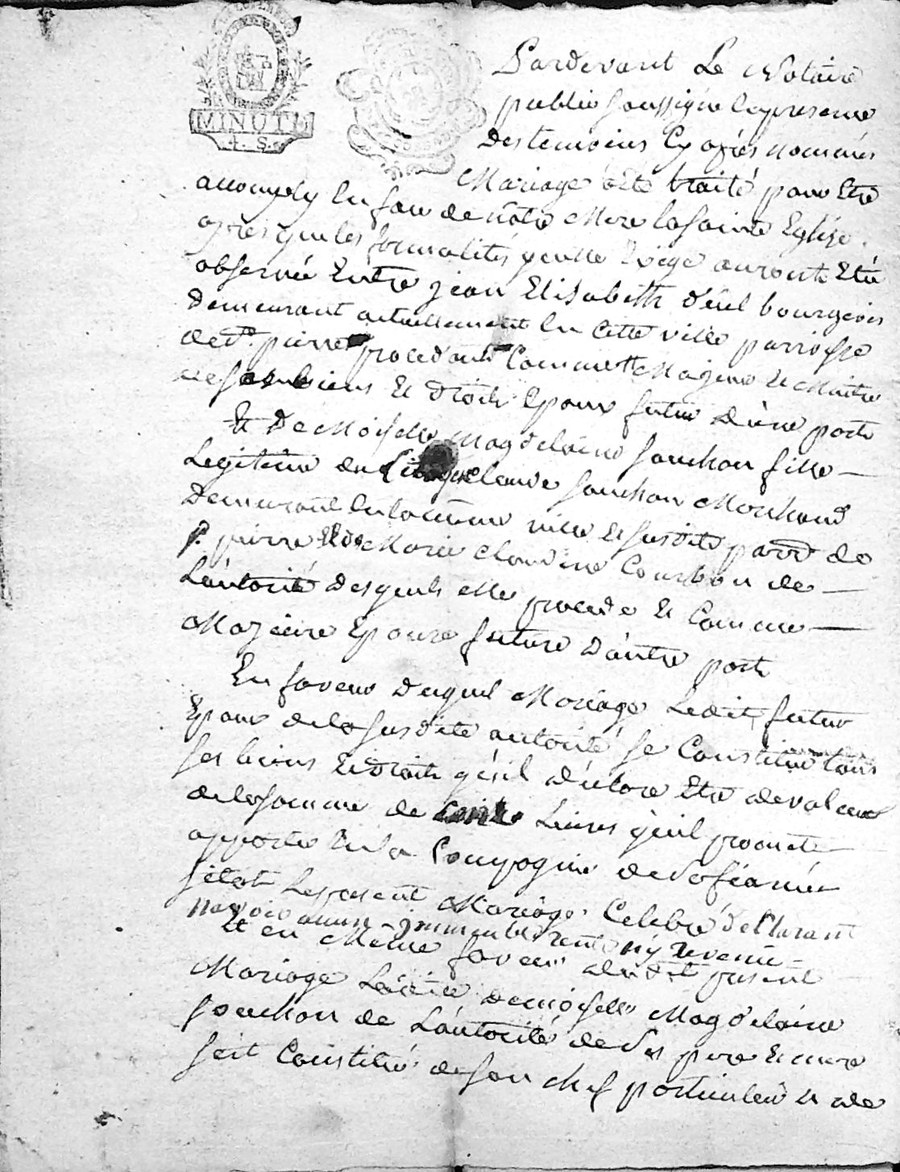 MINUTE
4. S.
Pardevant Le Notaire
public soussigné En presence
Des temoins Cy après nommés
Mariage a été traité pour Etre
accomply En face de nôtre Mere la sainte Eglise
après que les formalités quelle Exige auront Eté
observée Entre jean Elisabeth d'éil bourgeois
Demeurant actuellement En Cette ville parroisse
de St. pierre procedant Comme Majeur Et Maitre
de ses biens Et droits Epoux futur d'une part
Et DeMoiselle Magdelaine fauchon fille
Legitime du Citoyen Claude fauchon Marchand
Demeurant En la même ville Et susdite parr. de
St. pierre Et de Marie Claudine Courbon de
L'autorité Desquels Elle procede Et Comme
Majeure Epouse future D'autre part
En faveur Duquel Mariage Ledit futur
Epoux de la susdite autorité se Constitue tous
ses biens Et droits qu'il déclare Etre de valeur
de la somme de Cent Livres qu'il promet
apporter En la Compagnie de sa fiancée
sitôt Le present Mariage Celebré declarant
n'avoir aucun immeuble rente ny revenu
Et en Même faveur dudit present
Mariage Ladite demoiselle Magdelaine
fauchon de L'autorité de ses pere Et mere
s'est Constitué de son chef particulier Et de